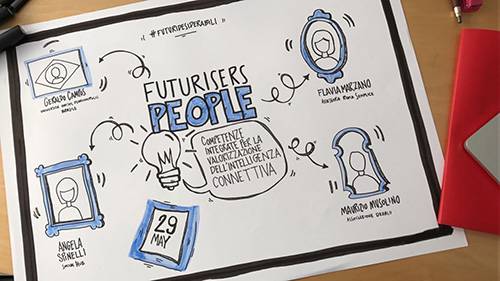 #FUTURIDESIDERABILI
GERALDO CAMPOS
BRASILE
FUTURISERS
PEOPLE
FLAVIA MARZANO
ASSESSORA ROMA SEMPLICE
COMPETENZE
INTEGRATE PER LA
VALORIZZAZIONE
DELL'INTELLIGENZA
CONNETTIVA
ANGELA
SPINELLI
SOCIAL HUB
29
MAY
MAURIZIO MUSOLINO
ASSOCIAZIONE